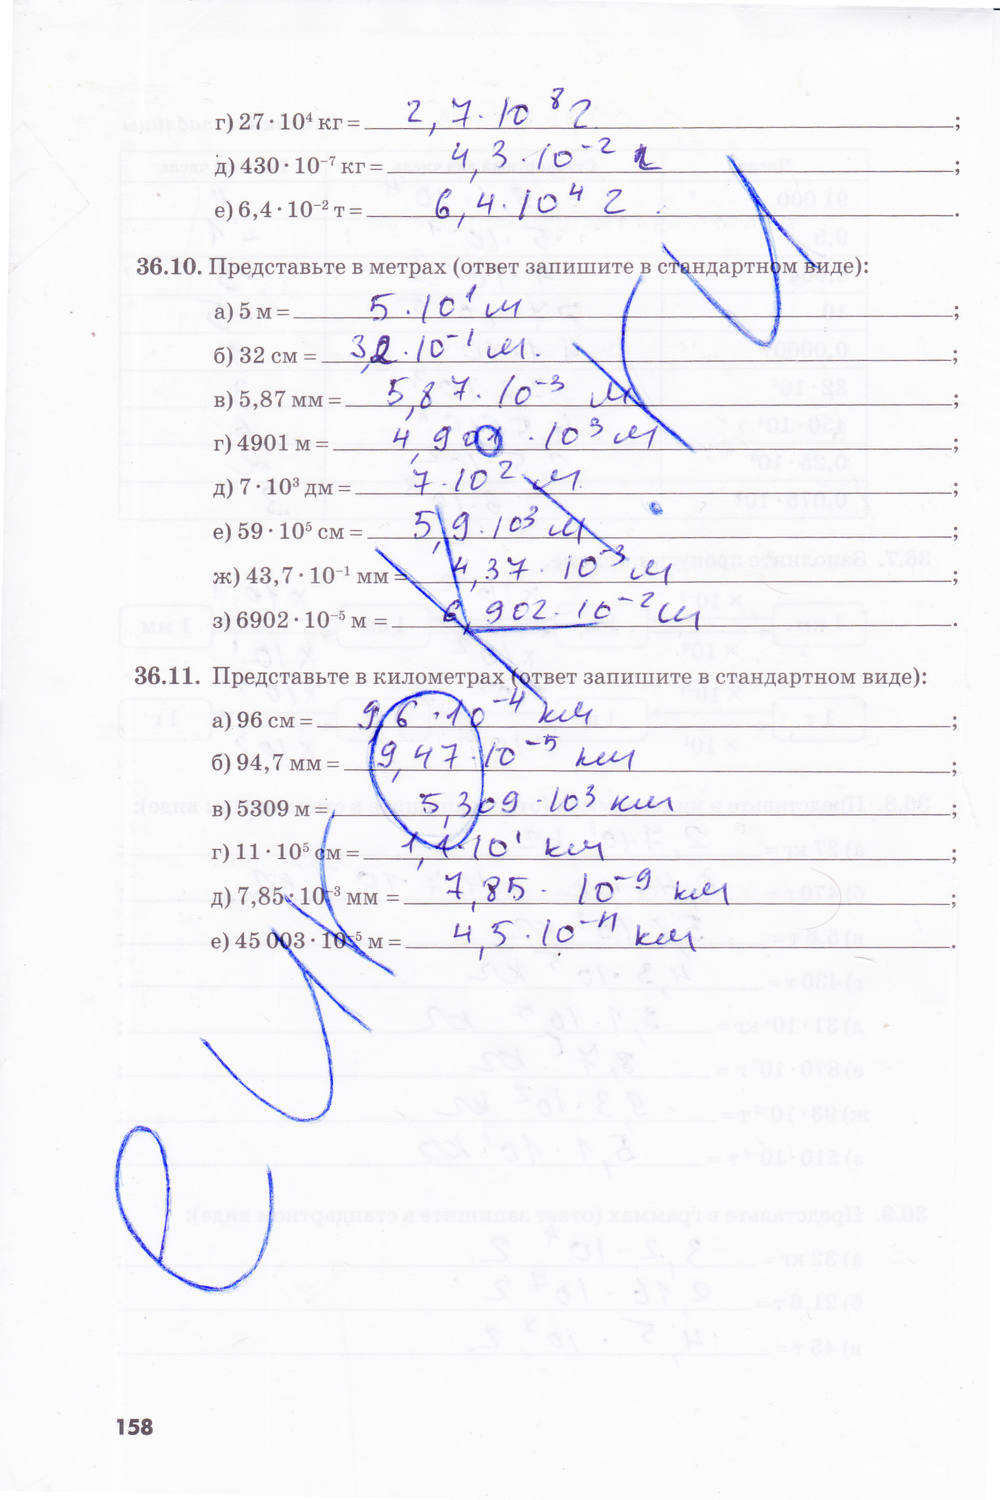 г) 27 · 10⁴ кг = 2,7 · 10⁸ г ;
д) 430 · 10⁻⁷ кг = 4,3 · 10⁻² г ;
е) 6,4 · 10⁻² т = 6,4 · 10⁴ г .
36.10. Представьте в метрах (ответ запишите в стандартном виде):
а) 5 м = 5 · 10¹ м ;
б) 32 см = 3,2 · 10⁻¹ м. ;
в) 5,87 мм = 5,87 · 10⁻³ м ;
г) 4901 м = 4,901 · 10³ м ;
д) 7 · 10³ дм = 7 · 10² м ;
е) 59 · 10⁵ см = 5,9 · 10³ м ;
ж) 43,7 · 10⁻¹ мм = 4,37 · 10⁻³ м ;
з) 6902 · 10⁻⁵ м = 6,902 · 10⁻² м .
36.11. Представьте в километрах (ответ запишите в стандартном виде):
а) 96 см = 9,6 · 10⁻⁴ км ;
б) 94,7 мм = 9,47 · 10⁻⁵ км ;
в) 5309 м = 5,309 · 10³ км ;
г) 11 · 10⁵ см = 1,1 · 10¹ км ;
д) 7,85 · 10⁻³ мм = 7,85 · 10⁻⁹ км ;
е) 45 003 · 10⁻⁵ м = 4,5 · 10⁻⁴ км .
158